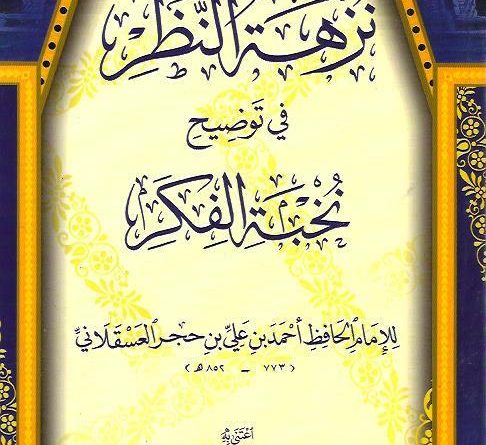 نُزْهَةُ النَّظَرِ
فِي تَوْضِيحِ
نُخْبَةِ الفِكَرِ
لِلإِمَامِ الحَافِظِ أَحْمَدَ بْنِ عَلِيِّ بْنِ حَجَرٍ العَسْقَلَانِيِّ
(٧٧٣ - ٨٥٢ هـ)
اعْتَنَى بِهِ